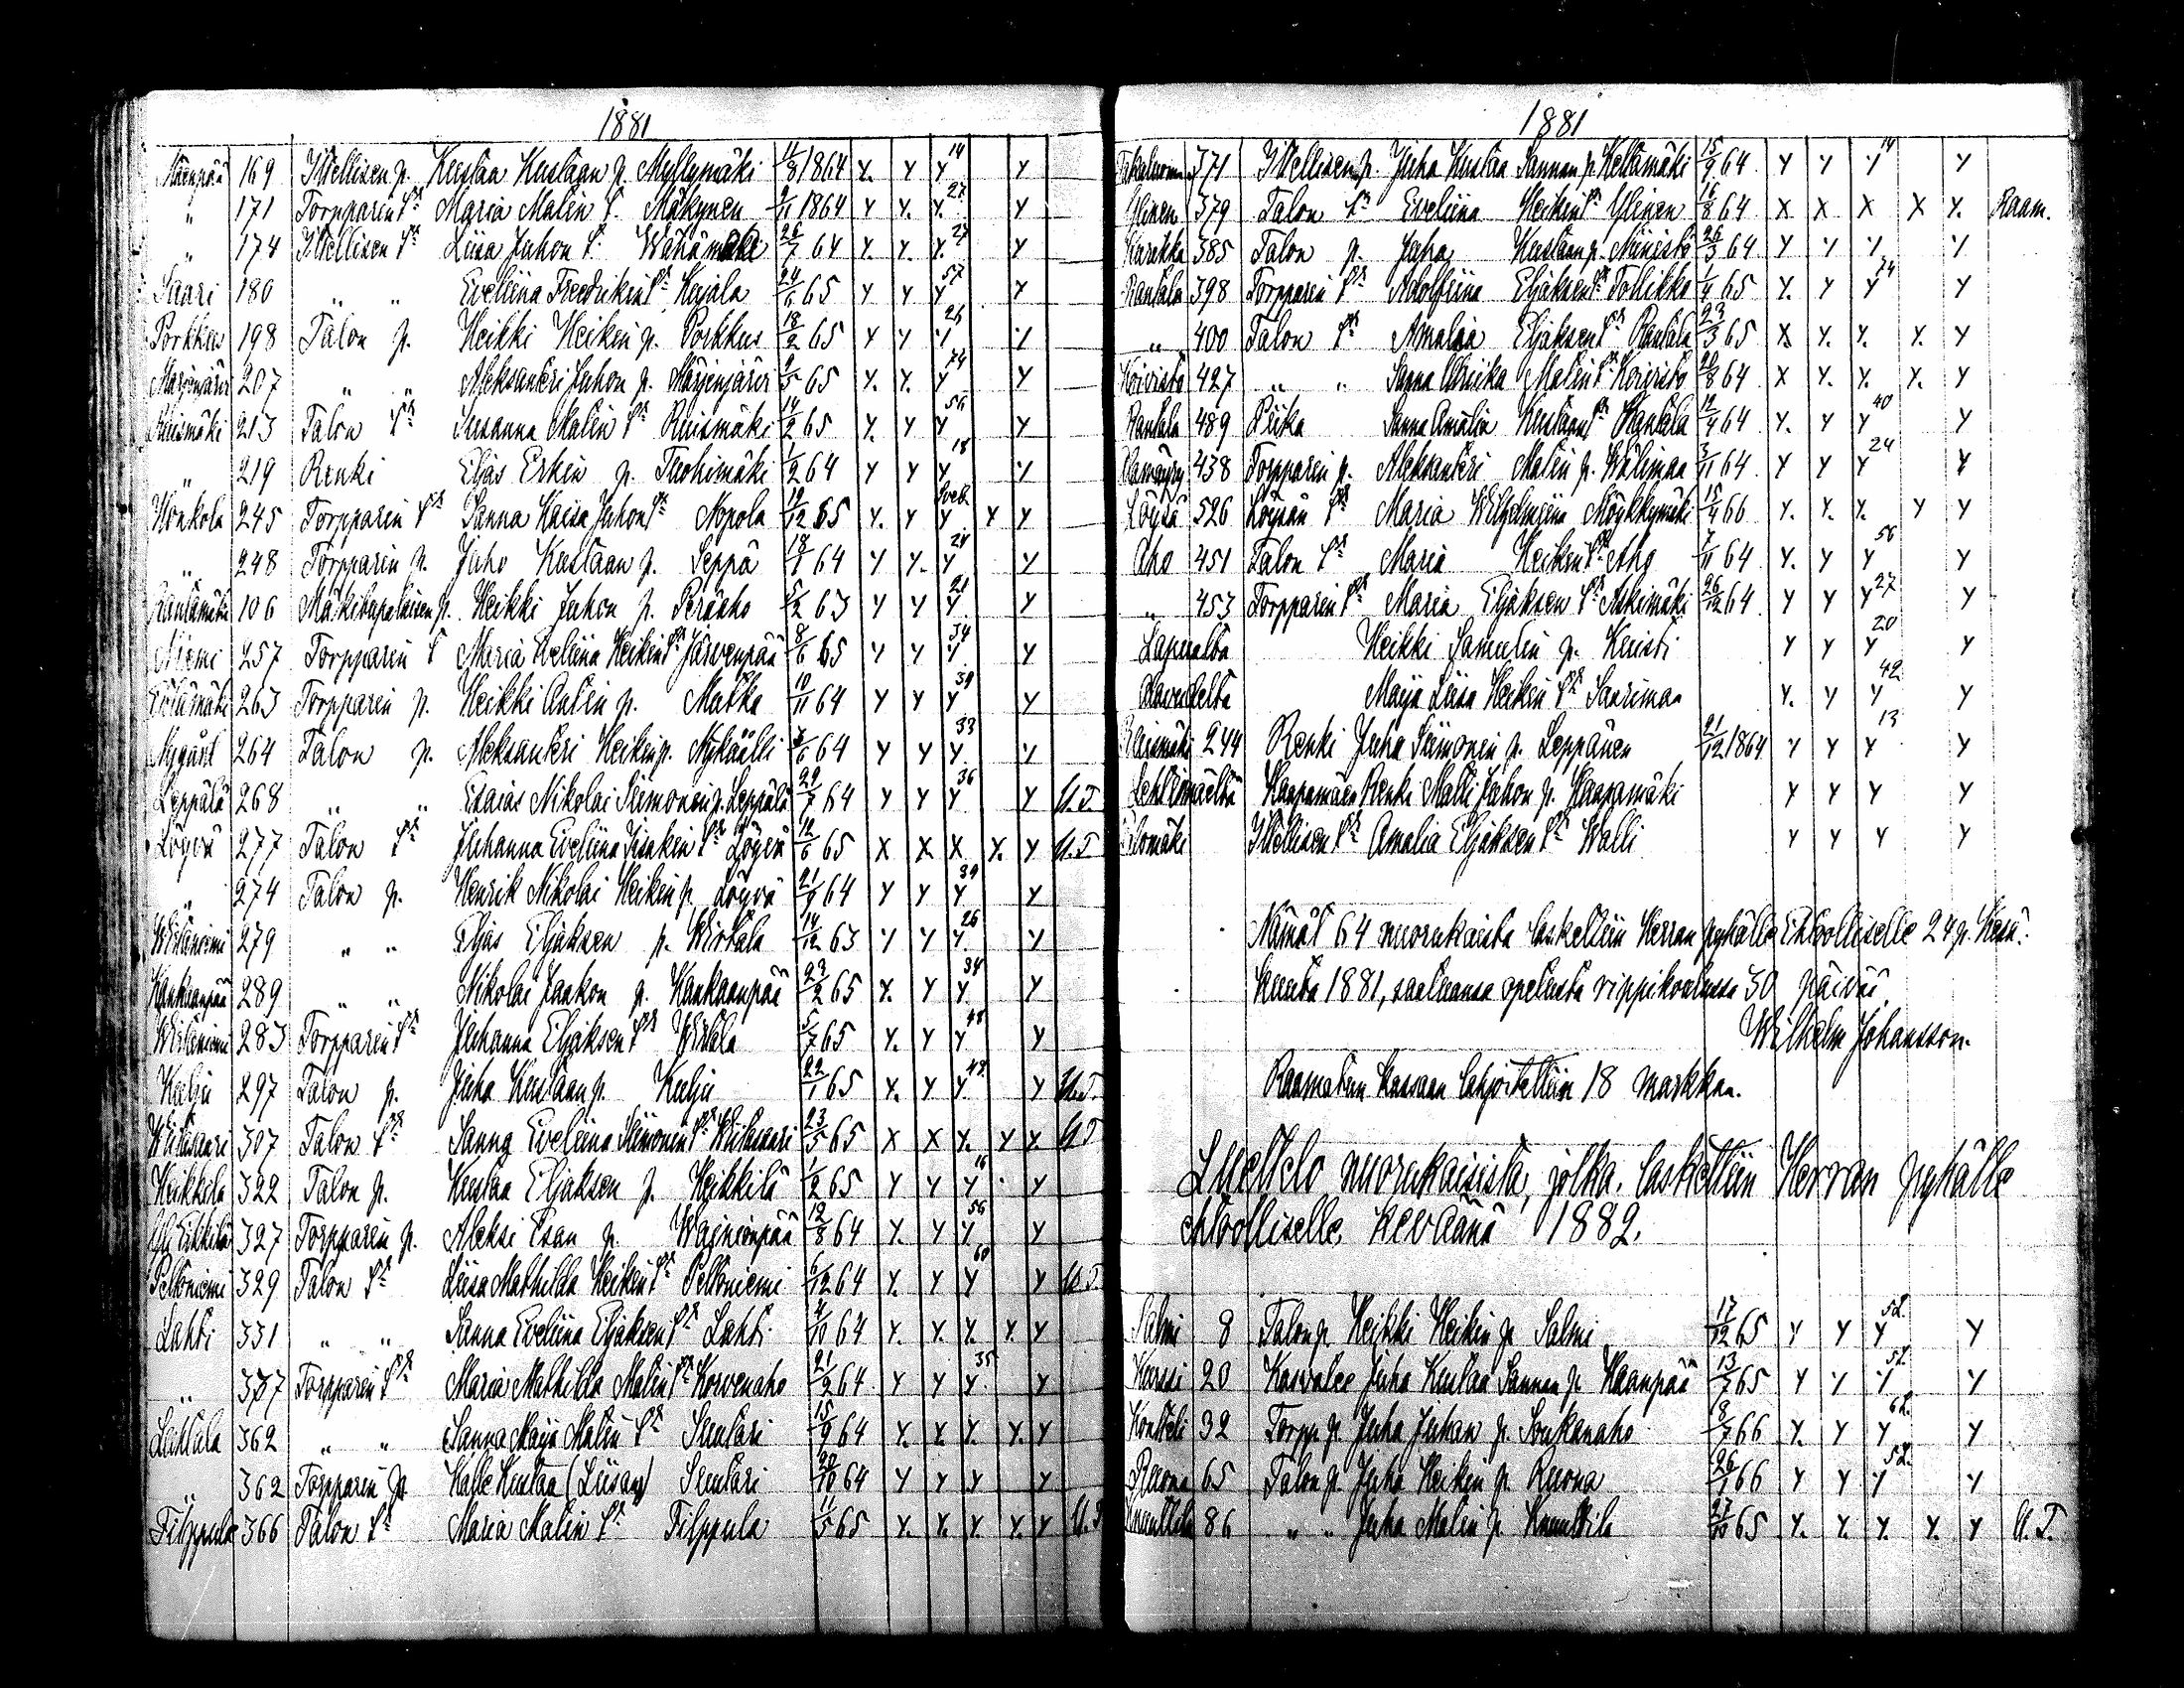 1881
Mäenpää 169 Itsellisen p. Kustaa Kustaan p. Myllymäki 11/8 1864 y. y y 14 y
" 171 Torpparin t:r Maria Matin t. Mäkynen 9/11 1864 y y. y. 27 y
" 174 Itsellisen t:r Liisa Juhon t. Wähämäki 26/7 64 y. y. y. 27 y
Saari 180 " " Eveliina Fredrikin t:r Harjala 24/6 65 y y y 57 y
Porkkus 198 Talon p. Heikki Heikin p. Porkkus 18/2 65 y y y 26 y
Marjenjärvi 207 " " Aleksanteri Juhon p. Marjenjärvi 9/5 65 y. y. y 74 y
Ruismäki 213 Talon t:r Susanna Matin t:r Ruismäki 14/2 65 y. y y 56 y
" 219 Renki Eljas Erkin p. Tuohimäki 1/2 64 y y y 18 y
Honkola 245 Torpparin t:r Sanna Kaisa Juhon t:r Nopola 19/12 65 y. y y y y
" 248 Torpparin p. Juho Kustaan p. Seppä 18/1 64 y y. y 24 y
Rantamäki 106 Mäkitupalaisen p. Heikki Juhon p. Peräaho 5/2 63 y y y 21 y
Niemi 257 Torpparin t Maria Eveliina Heikin t:r Järvenpää 8/6 65 y y y 34 y
263 Torpparin p. Heikki Antin p. Matka 10/11 64 y y y 39 y
Nygård 264 Talon p. Aleksanteri Heikin p. Nykäälli 64 y y y 33 y
Leppälä 268 " " Esaias Nikolai Siimonin p. Leppälä 29/7 64 y y y 36 y U.T.
Löyvä 277 Talon t:r Juhanna Eveliina Iisakin t:r Löyvä 12/6 65 x x x x. y U.T
" 274 Talon p. Henrik Nikolai Heikin p. Löyvä 21/9 64 y y y 39 y
Wirtaniemi 279 " " Eljas Eljaksen p. Wirtala 14/12 63 y y y. 26 y
Kankaanpää 289 " " Nikolai Jaakon p. Kankaanpää 23/2 65 y. y y. 34 y
Wirtaniemi 283 Torpparin t:r Juhanna Eljaksen t:r Wirtala 5/7 65 y. y y 48 y
Kulju 297 Talon p. Juha Kustaan p. Kulju 22/1 65 x. y y 42 y U.T.
Wiitasaari 307 Talon t:r Sanna Eveliina Siimonin t:r Wiitasaari 23/5 65 x x y. y y. U.T
Heikkilä 322 Talon p. Kustaa Eljaksen p. Heikkilä 1/2 65 y y y 16 y
Yli Erkkilä 327 Torpparin p. Aleksi Esan p. Wainionpää 12/8 64 y. y y 56 y
Peltoniemi 329 Talon t:r Liisa Mathilda Heikin t:r Peltoniemi 6/12 64 y. y y 60 y U.T.
Lahti 331 " " Sanna Eveliina Eljaksen t:r Lahti 4/10 64 y. y. y. y. y
" 337 Torpparin t:r Maria Mathilda Matin t:r Korvenaho 21/2 64 y y y 35 y
Lahtala 362 " " Sanna Maija Matin t:r Sentari 15/9 64 y. y. y. y. y
" 362 Torpparin p. Kalle Kustaa (Liisan) Sentari 20/10 64 y y y y
Filppula 366 Talon t:r Maria Matin t:r Filppula 11/5 65 y. y. y. y. y U.T
1881
371 Itsellisen p. Juha Kustaa Sannan p. Keltamäki 15/9 64. y y y 14 y
Ylinen 379 Talon t:r Eveliina Heikin t:r Ylinen 16/8 64 x x x x x. Raam.
Karikka 385 Talon p. Juha Kustaan p. Ninistö 26/3 64. y y y y
Rantala 398 Torpparin t:r Adolfiina Eljaksen t:r Tollikko 1/4 65 y. y y 74 y
" 400 Talon t:r Amalia Eljaksen t:r Rantala 23/3 65 x y. y. y. y
Koivisto 427 " " Sanna Ulriika Matin t:r Koivisto 20/8 64 x y. y. y. y
Rantala 489 Piika Sanna Amalia Kustaan t:r Rantala 12/4 64 y. y y 40 y
438 Torpparin p. Aleksanteri Matin p. Wälimaa 3/11 64 y y y 24 y
Löysä 526 Löysän t:r Maria Wilhelmiina Möykkymäki 15/4 66 y. y. y. y y
Aho 451 Talon t:r Maria Heikin t:r Aho 7/11 64 y. y y 56 y
" 453 Torpparin t:r Maria Eljaksen t:r Askimäki 26/12 64 y y y 27 y
Lapualta Heikki Samulin p. Kuisti y y y 20 y
Maija Liisa Heikin t:r Saarimaa y. y y 42 y
Ruismäki 244 Renki Juha Siimonin p. Leppänen 21/12 1864 y y y 13 y
Lehtimäeltä Haapamäen Renki Matti Juhon p. Haapamäki y y y y
Itsellisen t:r Amalia Eljaksen t:r Walli y y y y
Nämät 64 nuorukaista laskettiin Herran pyhälle Ehtoolliselle 24 p. Kesä-
kuuta 1881, saatuansa opetusta rippikoulussa 30 päivää.
Wilhelm Johansson.
Raamatun kassaan lahjoitettiin 18 markkaa.
Luettelo nuorukaisista, jotka laskettiin Herran pyhälle
ehtoolliselle keväänä 1882.
Salmi 8 Talon p. Heikki Heikin p. Salmi 17/12 65 y y y 52. y
Karssi 20 Kasvatee Juha Kustaa Sannan p. Haanpää 13/7 65 y y y 57. y
Kontteli 32 Torpp. p. Juha Juhan p. Soukanaho 8/7 66 y. y y 62. y
Ruona 65 Talon p. Juha Heikin p. Ruona 26/1 66 y y y 52. y
Knuuttila 86 " " Juha Matin p. Knuuttila 27/10 65 y. y. y. y. y U.T.